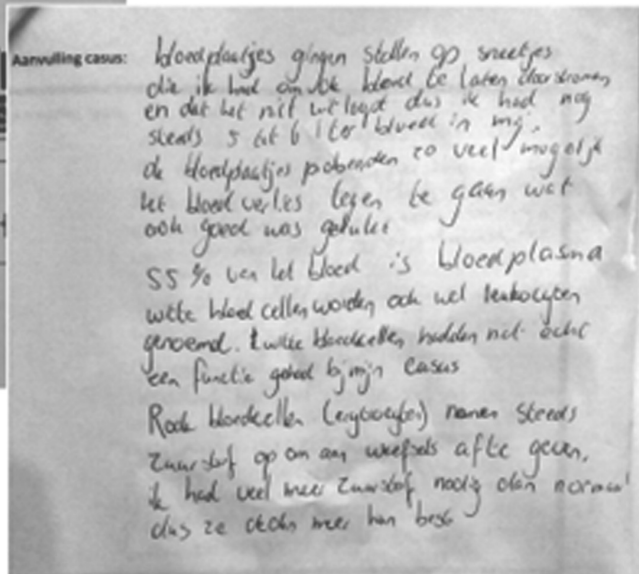 Aanvulling casus: bloedplaatjes gingen stollen op sneetjes
die ik had om bloed te laten doorstromen
en dat het niet dus ik had nog
steeds 5 tot 6 liter bloed in mij.
de bloedplaatjes probeerden zo veel mogelijk
het bloed verlies tegen te gaan wat
ook goed was gelukt
55 % van het bloed is bloedplasma
witte bloed cellen worden ook wel leukocyten
genoemd. witte bloedcellen hadden niet echt
een functie gehad bij mijn casus
Rode bloedcellen (erytrocyten) namen steeds
zuurstof op om aan weefsels af te geven.
ik had veel meer zuurstof nodig dan normaal
dus ze deden meer hun best